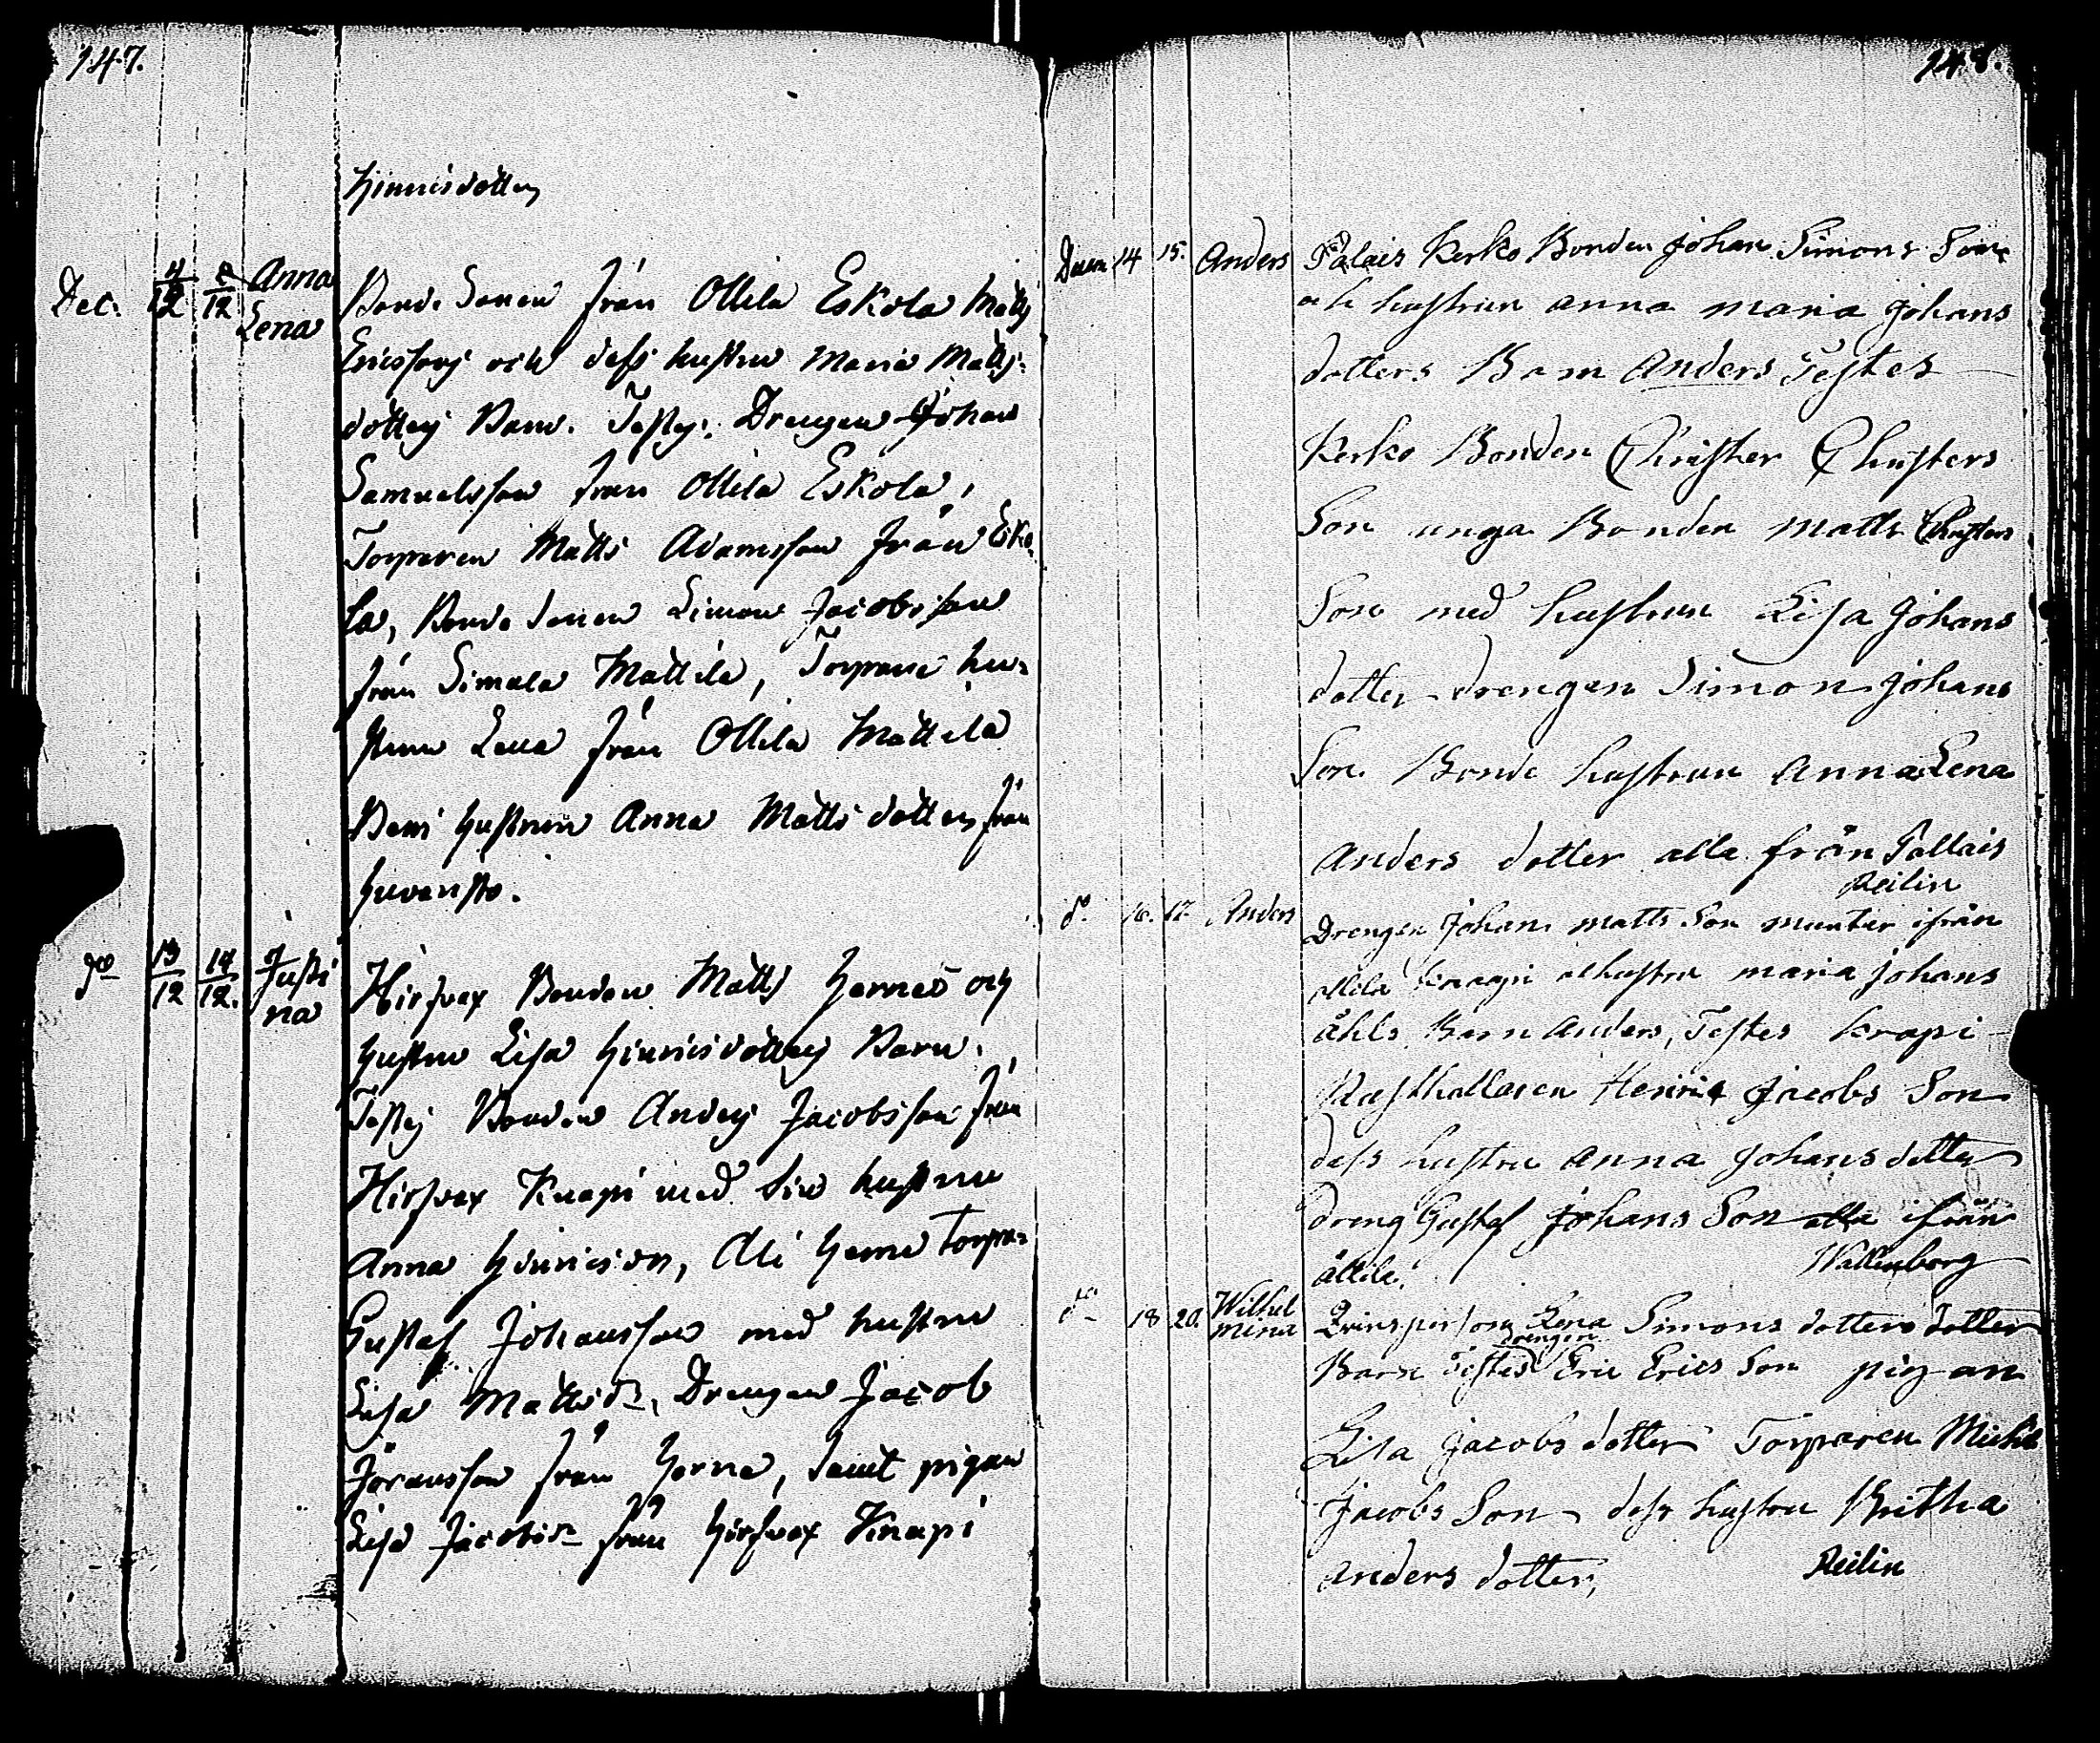 147.
Hinricsdotter
Dec. 4/12 8/12 Anna Lena
Bonde Sonen från Ollila Eskola Matts
Ericssons och dess hustru Maria Matts-
dotters Barn. Testes: Drengen Johan
Samuelsson från Ollila Eskola,
Torparen Matts Adamsson från Esko-
la, Bonde Sonen Simon Jacobsson
från Simola Mattila, Torpare hu-
strun Lena från Ollila Mattila
Bond Hustrun Anna Matts dotter från
do 13/12 14/12. Justina
Hirfvex Bonden Matts Hernes och
Hustru Lisa Hinricsdotters Barn.
Testes Bonden Anders Jacobsson från
Hirfvex Knapi med sin hustru
Anna Hinricsdr, Ali Herne Torpa-
Gustaf Johansson med hustru
Lisa Mattsdr, Drengen Jacob
Jöransson från Herne, samt pigan
Lisa Jacobsdr från Hirfvex Knapi
148.
Decem 14 15. Anders
Palais Kerko Bonden Johan Simons Son
och hustrun Anna Maria Johans
dotters Barn Anders Testes
Kerko Bonden Christer Christers
Son unga Bonden Matts Christers
Son med hustrun Lisa Johans
dotter drengen Simon Johans
Son Bonde hustrun Anna Lena
Anders dotter alla från Pallais
Reilin
do. 16. 17. Anders
Drengen Johan Matts Son Munter ifrån
ollila Knapi och hustru Maria Johans
Barn Anders, Testes Krapi
Rusthållaren Henric Jacobs Son
dess hustru Anna Johans dotter
dreng Gustaf Johans Son alla ifrån
ållila.
Wallenborg
do 18 20. Wilhelmina
Qvinsperson Lena Simons dotters dotter
drengen
Barn Testes Eric Erics Son pigan
Lisa Jacobs dotter Torparen Michel
Jacobs Son dess hustru Britha
Anders dotter,
Reilin